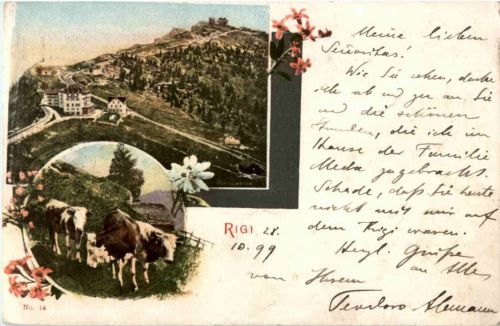 Meine lieben
Señoritas!
Wie Sie sehen, denke
ich ab und zu an Sie
und die schönen
Stunden, die ich im
Hause der Familie
Meda zugebracht.
Schade, daß Sie heute
nicht mit mir auf
dem Rigi waren.
Herzl. Grüße
an Alle
von Ihrem
Teodoro Alemann
RIGI 28.
10.99
No. 14